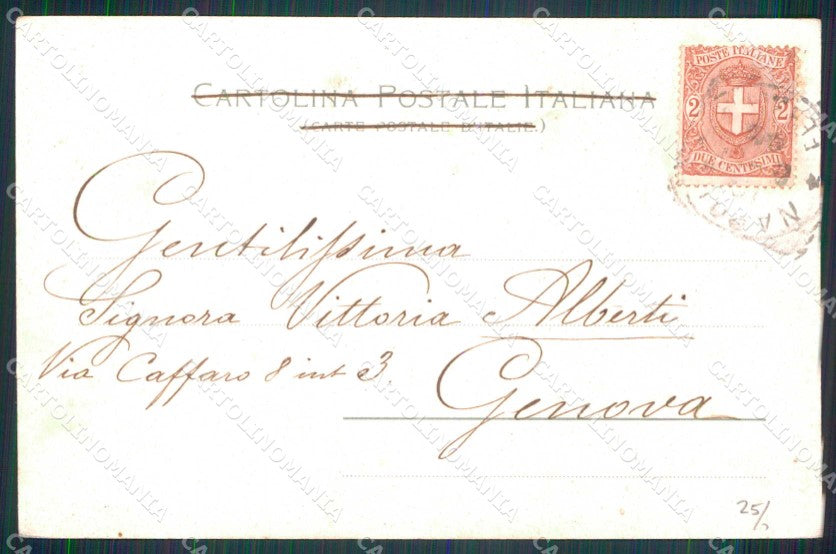 CARTOLINA POSTALE ITALIANA
(CARTE POSTALE D'ITALIE)
POSTE ITALIANE
2 2
DUE CENTESIMI
Gentilissima
Signora Vittoria Alberti
Via Caffaro 8 int 3
Genova
25/
CARTOLINOMANIA